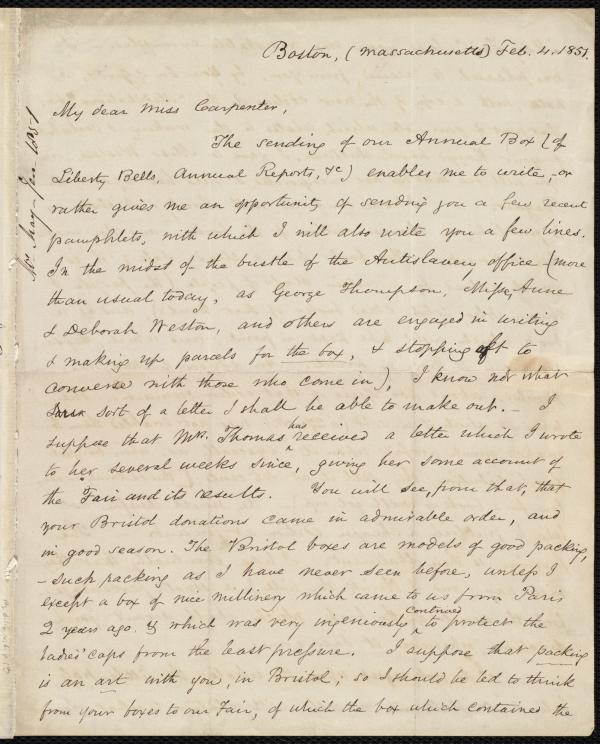 Boston, (Massachusetts) Feb. 4. 1851.
My dear Miss Carpenter,
The sending of our Annual Box (of
Liberty Bells, Annual Reports, &c) enables me to write, or
rather gives me an opportunity of sending you a few recent
pamphlets, with which I will also write you a few lines.
In the midst of the bustle of the Antislavery office (more
than usual today, as George Thompson, Misses Anne
& Deborah Weston, and others are engaged in writing
& making up parcels for the box, & stopping oft to
converse with those who come in), I know not what
sort of a letter I shall be able to make out. – I
suppose that Mrs. Thomas has received a letter which I wrote
to her several weeks since, giving her some account of
the Fair and its results. You will see, from that, that
your Bristol donations came in admirable order, and
in good season. The Bristol boxes are models of good packing,
– such packing as I have never seen before, unless I
except a box of nice millinery which came to us from Paris
2 years ago & which was very ingeniously contrived to protect the
ladies' caps from the least pressure. I suppose that packing
is an art with you, in Bristol; so I should be led to think
from your boxes to our Fair, of which the box which contained the
Mr May - Jan 1851